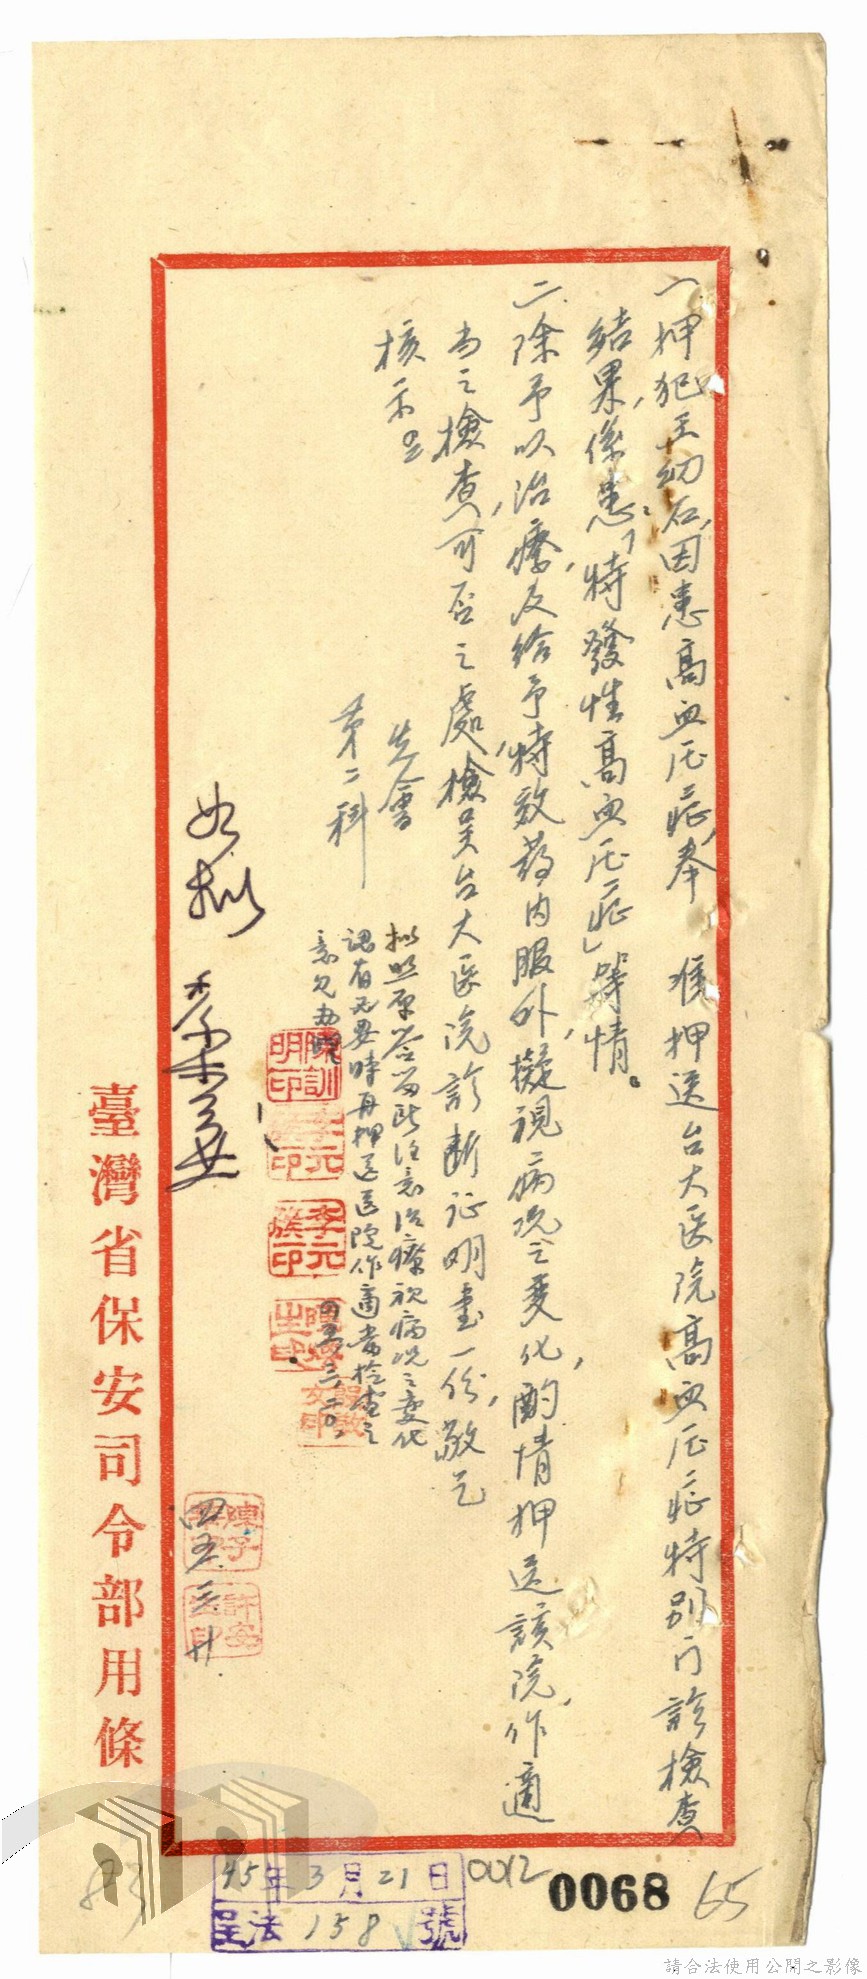 一、押犯王幼石,因患高血压症,奉　准押送台大医院高血压症特別门診檢查
結果,係患:「特發性高血压症」等情。
二、除予以治療,及給予特效葯内服外,擬視病况之变化,酌情押送該院,作適
当之檢查,可否之處,檢呈台大医院診断证明書一份,敬乞
核示
先會
第二科
拟照原簽留此注意治療視病况之變化
認有必要時再押送医院作適當檢查之
意見办理
四五、三、二〇、
陳訓明印
李元簇印
如拟
四五、三、廿
臺灣省保安司令部用條
45年3月21日
呈法158號
0012
0068
65
83
請合法使用公開之影像